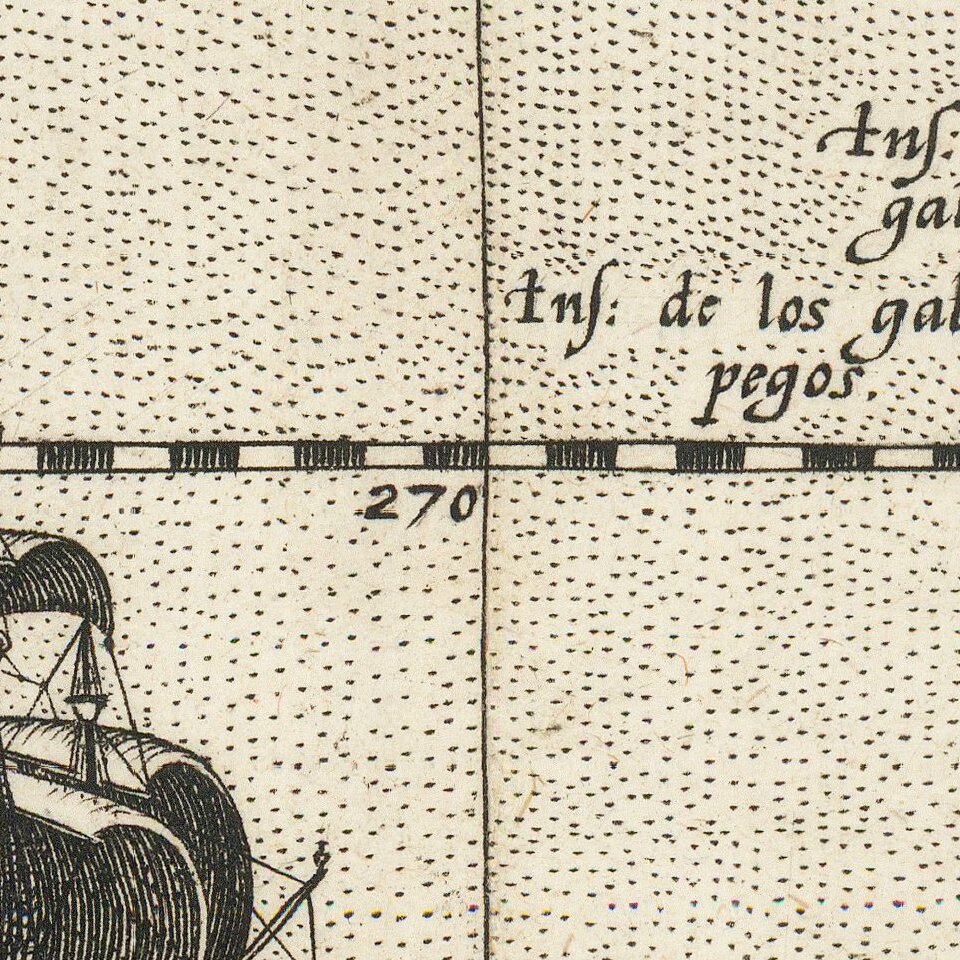 Inſ:
ga
Inſ: de los gal
pegos.
270